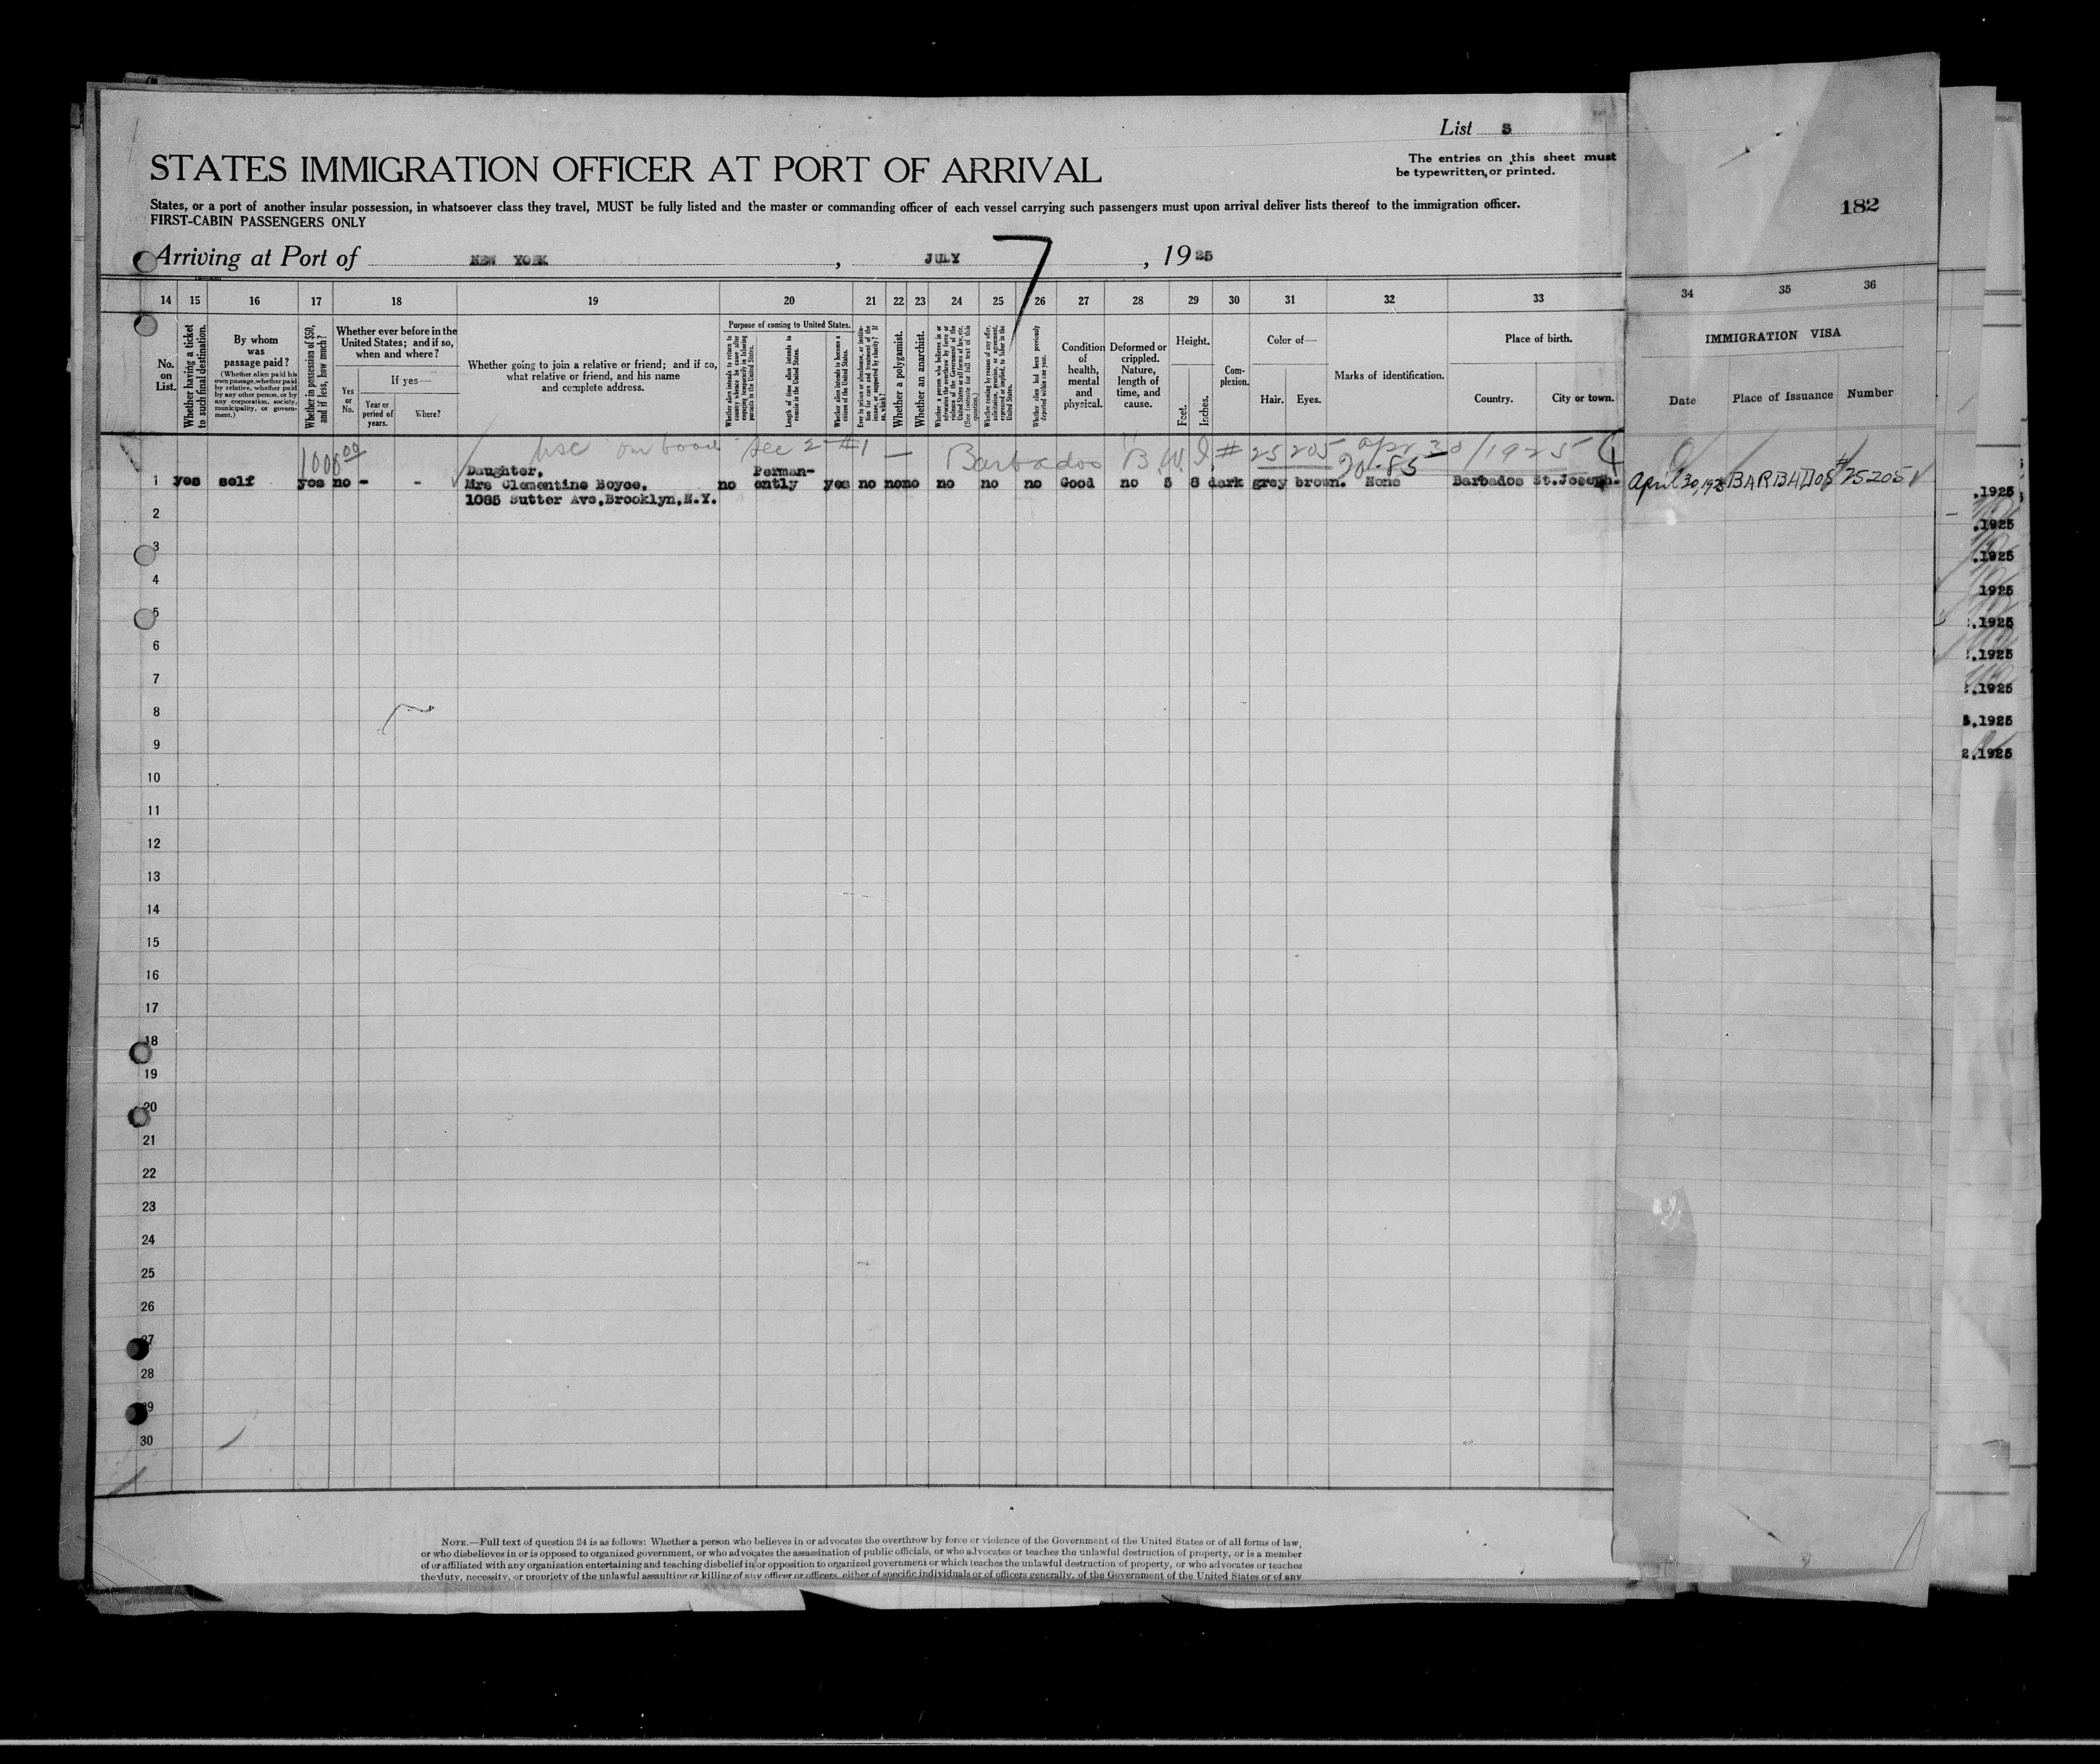 List 3
STATES IMMIGRATION OFFICER AT PORT OF ARRIVAL
The entries on this sheet must
be typewritten, or printed.
182
States, or a port of another insular possession, in whatsoever class they travel, MUST be fully listed and the master or commanding officer of each vessel carrying such passengers must upon arrival deliver lists thereof to the immigration officer.
FIRST-CABIN PASSENGERS ONLY
Arriving at Port of NEW YORK, JULY 7, 1925
14 15 16 17 18 19 20 21 22 23 24 25 26 27 28 29 30 31 32 33 34 35 36
No. on List.
Whether having a ticket to such final destination.
By whom was passage paid?
(Whether alien paid his own passage, whether paid by relative, whether paid by any other person, or by any corporation, society, municipality, or government.)
Whether in possession of $50, and if less, how much?
Whether ever before in the United States; and if so, when and where?
Yes or No.
If yes—
Year or period of years.
Where?
Whether going to join a relative or friend; and if so, what relative or friend, and his name and complete address.
Purpose of coming to United States.
Length of time alien intends to remain in the United States.
Whether alien intends to become a citizen of the United States.
Whether a polygamist.
Whether an anarchist.
Condition of health, mental and physical.
Deformed or crippled. Nature, length of time, and cause.
Height.
Feet.
Inches.
Complexion.
Color of—
Hair.
Eyes.
Marks of identification.
Place of birth.
Country.
City or town.
IMMIGRATION VISA
Date
Place of Issuance
Number
1000 00
on board Sec 2 #1 — Barbados B.W.I. # 25205 apr 30/1925
20-85
Daughter. Perman-
1 yes self yes no - - Mrs Clementine Boyce. no ently yes no no no no no no Good no 5 8 dark grey brown. None Barbados St.Joseph. April 30, 1925 BARBADOS #25205
1085 Sutter Ave,Brooklyn,N.Y.
2
3
4
5
6
7
8
9
10
11
12
13
14
15
16
17
18
19
20
21
22
23
24
25
26
27
28
29
30
,1925
,1925
,1925
1925
,1925
,1925
,1925
,1925
2,1925
NOTE.—Full text of question 24 is as follows: Whether a person who believes in or advocates the overthrow by force or violence of the Government of the United States or of all forms of law,
or who disbelieves in or is opposed to organized government, or who advocates the assassination of public officials, or who advocates or teaches the unlawful destruction of property, or is a member
of or affiliated with any organization entertaining and teaching disbelief in or opposition to organized government or which teaches the unlawful destruction of property, or who advocates or teaches
the duty, necessity, or propriety of the unlawful assaulting or killing of any officer or officers, either of specific individuals or of officers generally, of the Government of the United States or of any